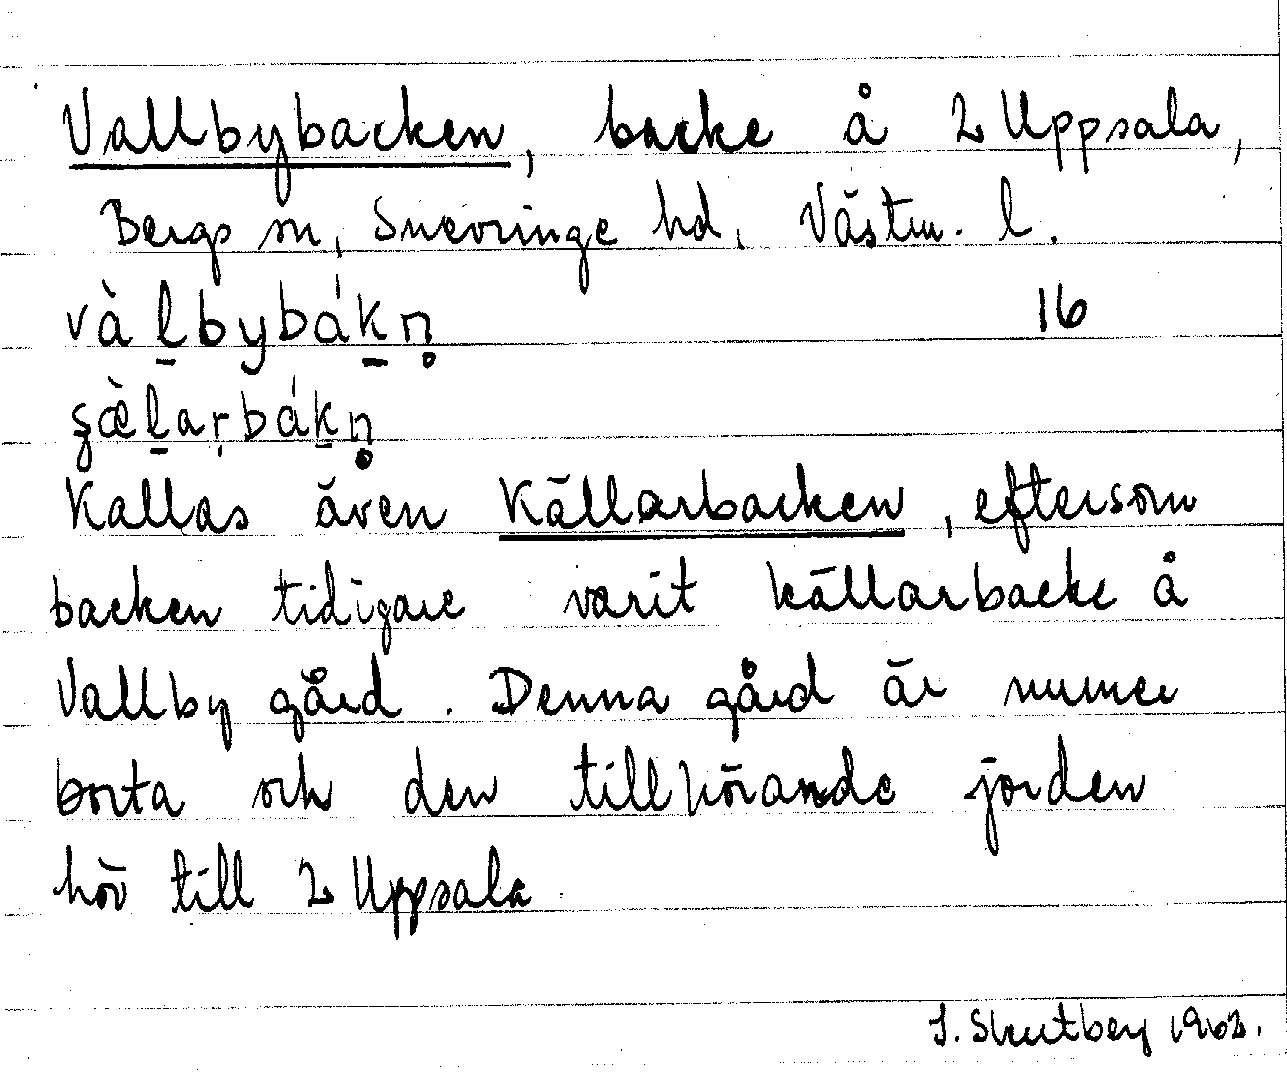 Vallbybacken, backe å 2 Uppsala,
Bergs sn, Snevringe hd, Västm. l.
và l̠bybák̠n̥ 16
ʂæ̀l̠aṛbák̠n̥
Kallas även Källarbacken, eftersom
backen tidigare varit källarbacke å
Vallby gård. Denna gård är numer
borta och den tillhörande jorden
hör till 2 Uppsala.